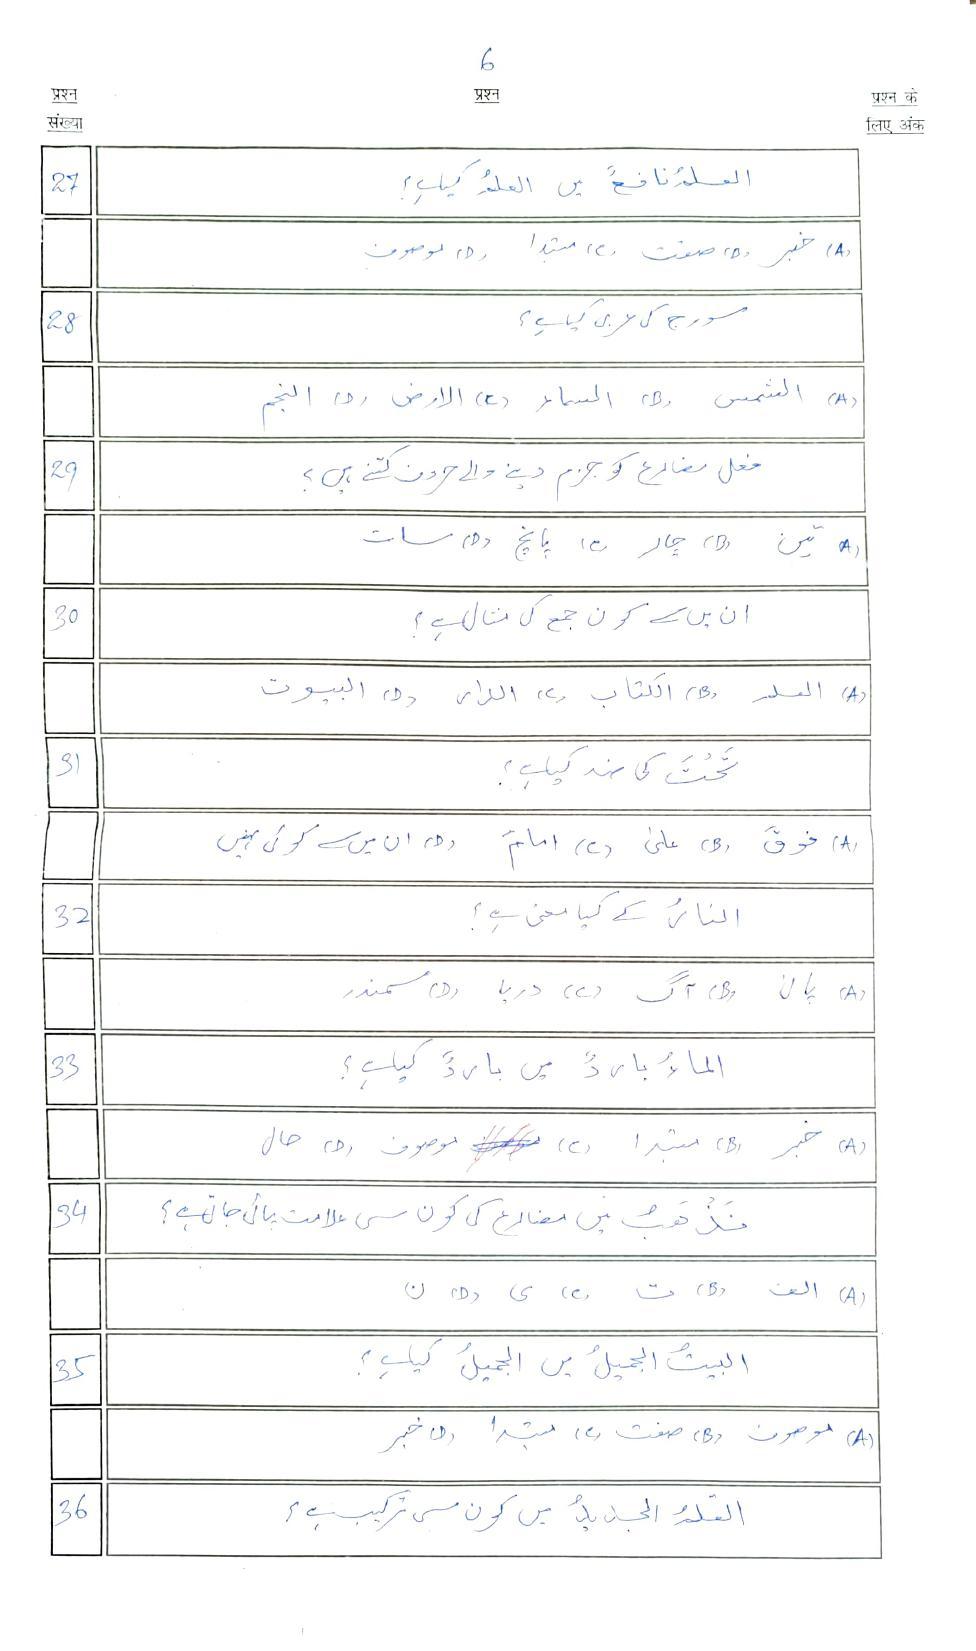 6
प्रश्न संख्या
प्रश्न
प्रश्न के लिए अंक
27 العلمُ نافعٌ میں العلمُ کیا ہے؟
(A) خبر (B) صفت (C) مبتدا (D) موصوف
28 سورج کی عربی کیا ہے؟
(A) الشمس (B) السماء (C) الارض (D) النجم
29 فعل مضارع کو جزم دینے والے حروف کتنے ہیں؟
(A) تین (B) چار (C) پانچ (D) سات
30 ان میں سے کون جمع کی مثال ہے؟
(A) العلم (B) الکتاب (C) الدار (D) البیوت
31 تَحْتَ کی ضد کیا ہے؟
(A) فوقَ (B) علیٰ (C) امامَ (D) ان میں سے کوئی نہیں
32 النارُ کے کیا معنی ہے؟
(A) پانی (B) آگ (C) دریا (D) سمندر
33 الماءُ باردٌ میں باردٌ کیا ہے؟
(A) خبر (B) مبتدا (C) موصوف (D) حال
34 نَذْهَبُ میں مضارع کی کون سی علامت پائی جاتی ہے؟
(A) الف (B) ت (C) ی (D) ن
35 البیتُ الجمیلُ میں الجمیلُ کیا ہے؟
(A) موصوف (B) صفت (C) مبتدا (D) خبر
36 القلمُ الجدیدُ میں کون سی ترکیب ہے؟